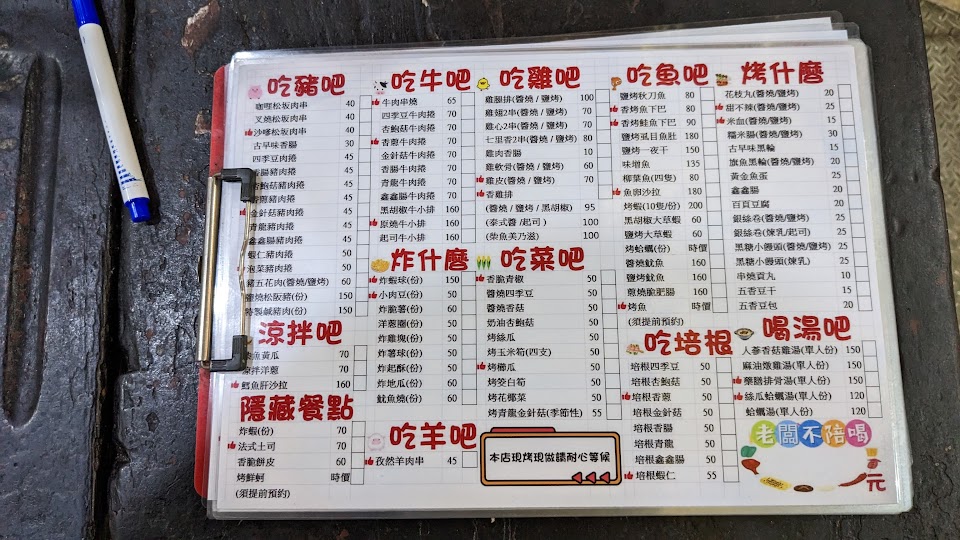 吃豬吧
咖哩松坂肉串 40
叉燒松坂肉串 40
沙嗲松坂肉串 40
古早味香腸 30
四季豆豬肉捲 45
香腸豬肉捲 45
杏鮑菇豬肉捲 45
香蔥豬肉捲 45
金針菇豬肉捲 45
青龍豬肉捲 45
鑫鑫腸豬肉捲 45
蝦仁豬肉捲 50
泡菜豬肉捲 50
豬五花肉(醬燒/鹽烤) 60
鹽燒松阪豬(份) 150
特製鹹豬肉(份) 150
涼拌吧
黃瓜 70
涼拌洋蔥 70
鱈魚肝沙拉 160
隱藏餐點
炸蝦(份) 70
法式土司 70
香脆餅皮 60
烤鮮蚵 時價
(須提前預約)
吃牛吧
牛肉串燒 65
四季豆牛肉捲 70
杏鮑菇牛肉捲 70
香蔥牛肉捲 70
金針菇牛肉捲 70
香腸牛肉捲 70
青龍牛肉捲 70
鑫鑫腸牛肉捲 70
黑胡椒牛小排 160
原燒牛小排 160
起司牛小排 160
炸什麼
炸蝦球(份) 150
小肉豆(份) 50
炸脆薯(份) 50
洋蔥圈(份) 50
炸雞塊(份) 50
炸薯球(份) 50
炸起酥(份) 50
炸地瓜(份) 60
魷魚燒(份) 60
吃羊吧
孜然羊肉串 45
吃雞吧
雞腿排(醬燒/鹽烤) 100
雞翅2串(醬燒/鹽烤) 70
雞心2串(醬燒/鹽烤) 50
七里香2串(醬燒/鹽烤) 80
雞肉香腸 10
雞軟骨(醬燒/鹽烤) 60
雞皮(醬燒/鹽烤) 70
香雞排
(醬燒/鹽烤/黑胡椒) 95
(泰式醬/起司) 100
(柴魚美乃滋) 100
吃菜吧
香脆青椒 50
醬燒四季豆 50
醬燒香菇 50
奶油杏鮑菇 50
烤絲瓜 50
烤玉米筍(四支) 50
烤櫛瓜 50
烤筊白筍 50
烤花椰菜 50
烤青龍金針菇(季節性) 55
本店現烤現做請耐心等候
吃魚吧
鹽烤秋刀魚 80
香烤魚下巴 80
香烤鮭魚下巴 90
鹽烤虱目魚肚 180
鹽烤一夜干 150
味增魚 135
柳葉魚(四隻) 80
魚卵沙拉 180
烤蝦(10隻/份) 200
黑胡椒大草蝦 60
鹽烤大草蝦 60
烤蛤蠣(份) 時價
醬燒魷魚 180
鹽烤魷魚 180
蔥燒脆肥腸 160
烤魚 時價
(須提前預約)
吃培根
培根四季豆 50
培根杏鮑菇 50
培根香蔥 50
培根金針菇 50
培根香腸 50
培根青龍 50
培根鑫鑫腸 50
培根蝦仁 55
烤什麼
花枝丸(醬燒/鹽烤) 20
甜不辣(醬燒/鹽烤) 25
米血(醬燒/鹽烤) 15
糯米腸(醬燒/鹽烤) 30
古早味黑輪 15
旗魚黑輪(醬燒/鹽烤) 35
黃金魚蛋 25
鑫鑫腸 20
百頁豆腐 20
銀絲卷(醬燒/鹽烤) 25
銀絲卷(煉乳/起司) 25
黑糖小饅頭(醬燒/鹽烤) 25
黑糖小饅頭(煉乳) 25
串燒貢丸 10
五香豆干 15
五香豆包 20
喝湯吧
人蔘香菇雞湯(單人份) 150
麻油燉雞湯(單人份) 150
藥膳排骨湯(單人份) 150
絲瓜蛤蠣湯(單人份) 120
蛤蠣湯(單人份) 120
老闆不陪喝
元